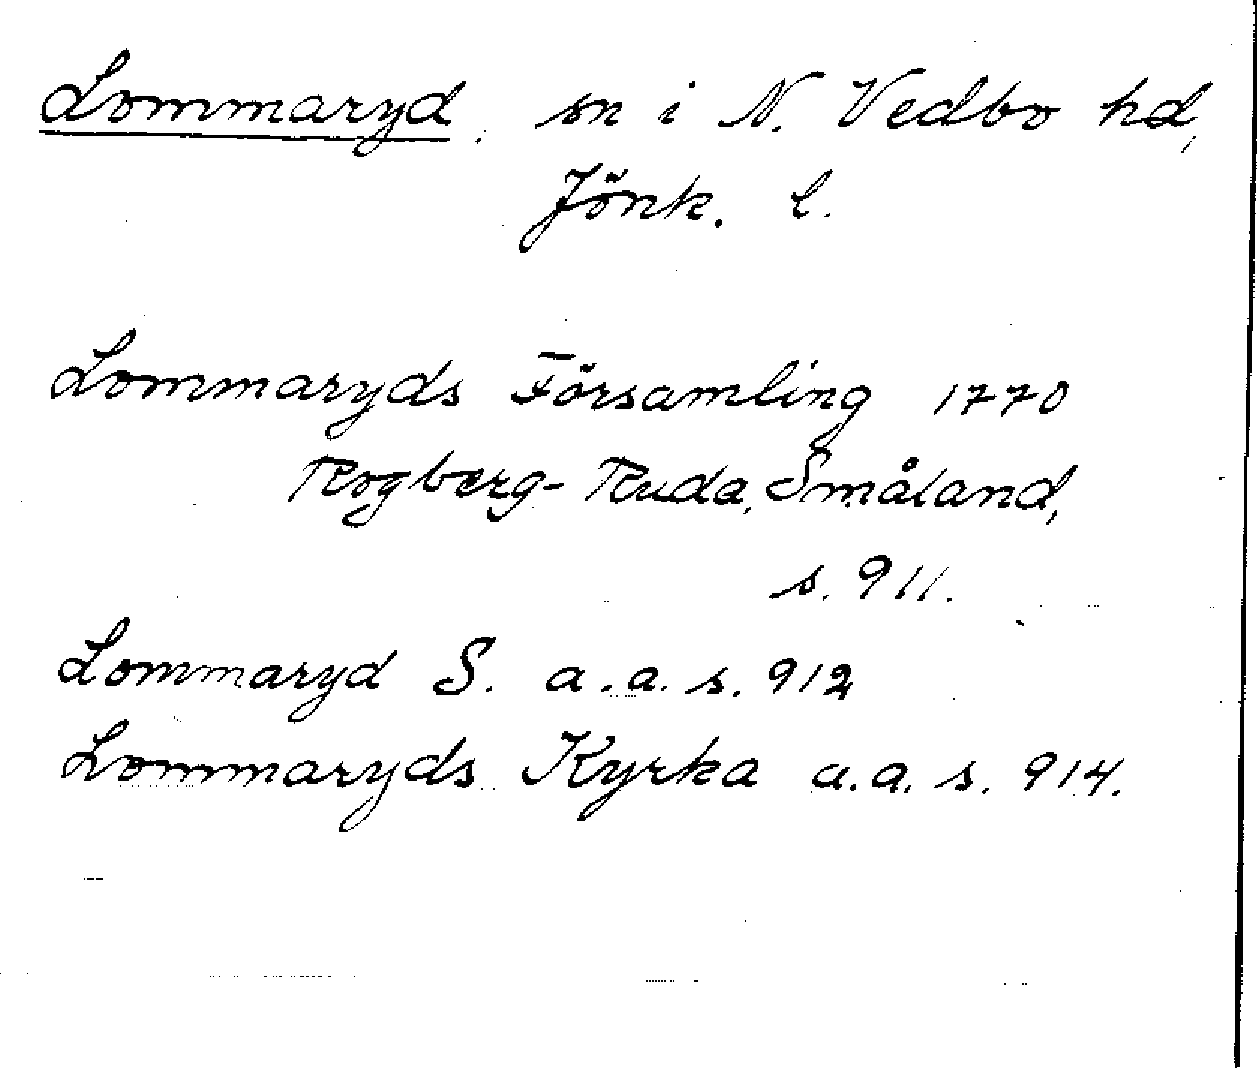 Lommaryd, sn i N. Vedbo hd,
Jönk. l.
Lommaryds Församling 1770
Rogberg-Ruda, Småland,
s. 911.
Lommaryd S. a.a. s. 912
Lommaryds Kyrka a.a. s. 914.